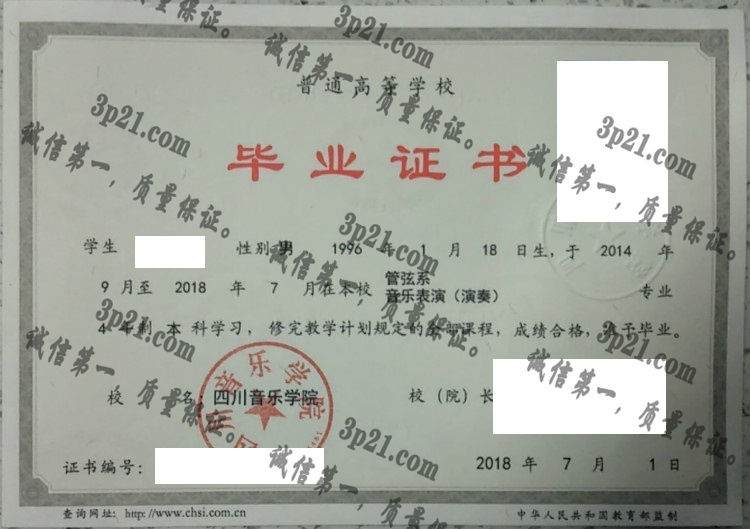 普通高等学校
毕业证书
学生 性别 男 1996 年 1 月 18 日生，于 2014 年
9 月至 2018 年 7 月在本校 管弦系
音乐表演（演奏） 专业
4 年制 本 科学习，修完教学计划规定的全部课程，成绩合格，准予毕业。
校 名：四川音乐学院 校（院）长
证书编号： 2018 年 7 月 1 日
查询网址：http://www.chsi.com.cn 中华人民共和国教育部监制
3p21.com
诚信第一，质量保证。
3p21.com
诚信第一，质量保证。
3p21.com
诚信第一，质量保证。
3p21.com
诚信第一，质量保证。
3p21.com
诚信第一，质量保证。
3p21.com
诚信第一，质量保证。
3p21.com
诚信第一，质量保证。